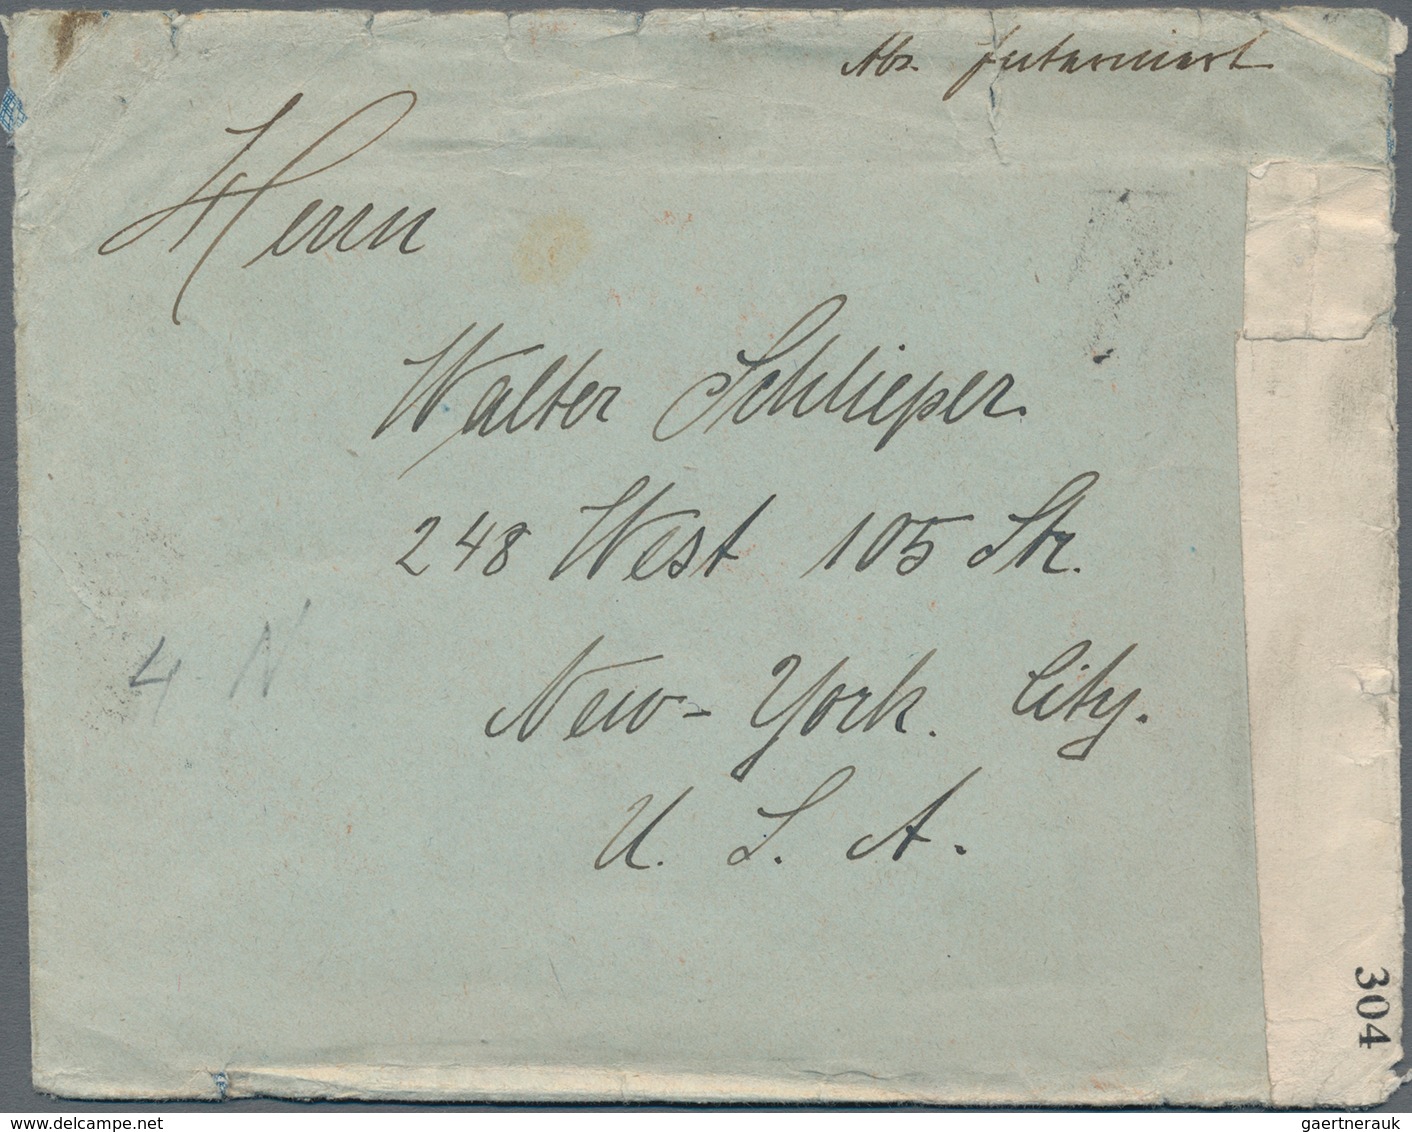 Abs. Interniert
Herrn
Walter Schlieper.
248 West 105 Str.
New-York. City.
U. S. A.
4 N
304
gaertnerauk
www.delcampe.net